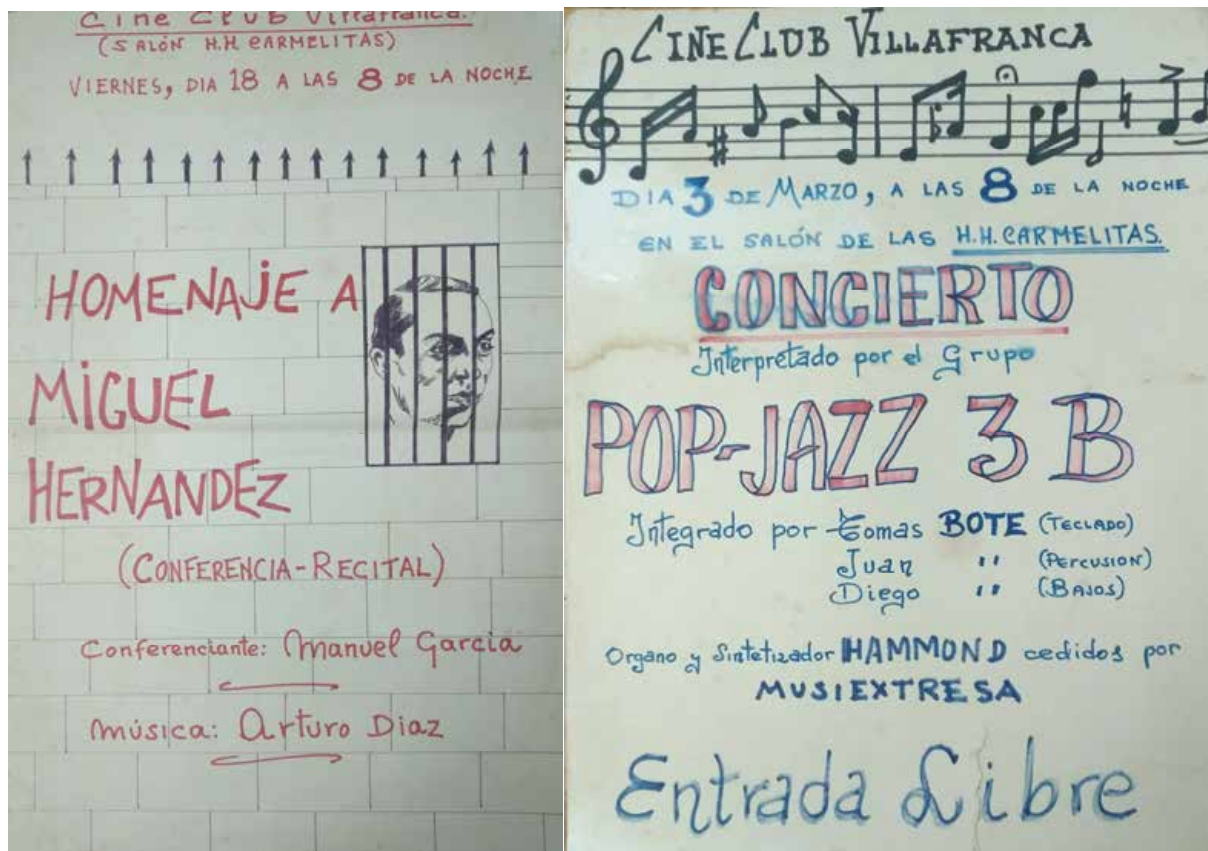 Cine CLUB Villafranca.
(SALÓN H.H. CARMELITAS)
VIERNES, DIA 18 A LAS 8 DE LA NOCHE
HOMENAJE A
MIGUEL
HERNANDEZ
(CONFERENCIA-RECITAL)
Conferenciante: Manuel Garcia
Música: Arturo Diaz
CINE CLUB VILLAFRANCA
DIA 3 DE MARZO, A LAS 8 DE LA NOCHE
EN EL SALÓN DE LAS H.H. CARMELITAS.
CONCIERTO
Interpretado por el Grupo
POP-JAZZ 3 B
Integrado por Tomas BOTE (TECLADO)
Juan " (PERCUSION)
Diego " (BAJOS)
Organo y Sintetizador HAMMOND cedidos por
MUSIEXTRESA
Entrada Libre